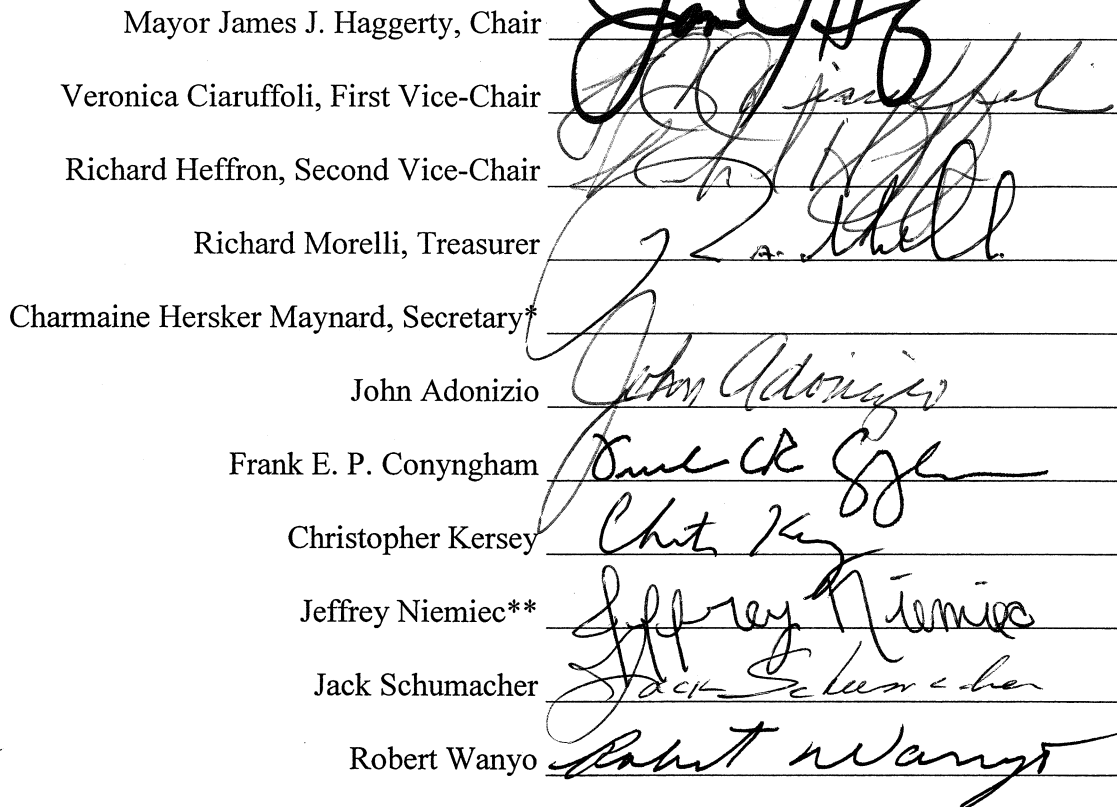 Mayor James J. Haggerty, Chair
Veronica Ciaruffoli, First Vice-Chair
Richard Heffron, Second Vice-Chair
Richard Morelli, Treasurer
Charmaine Hersker Maynard, Secretary*
John Adonizio John Adonizio
Frank E. P. Conyngham
Christopher Kersey
Jeffrey Niemiec** Jeffrey Niemiec
Jack Schumacher Jack Schumacher
Robert Wanyo Robert Wanyo